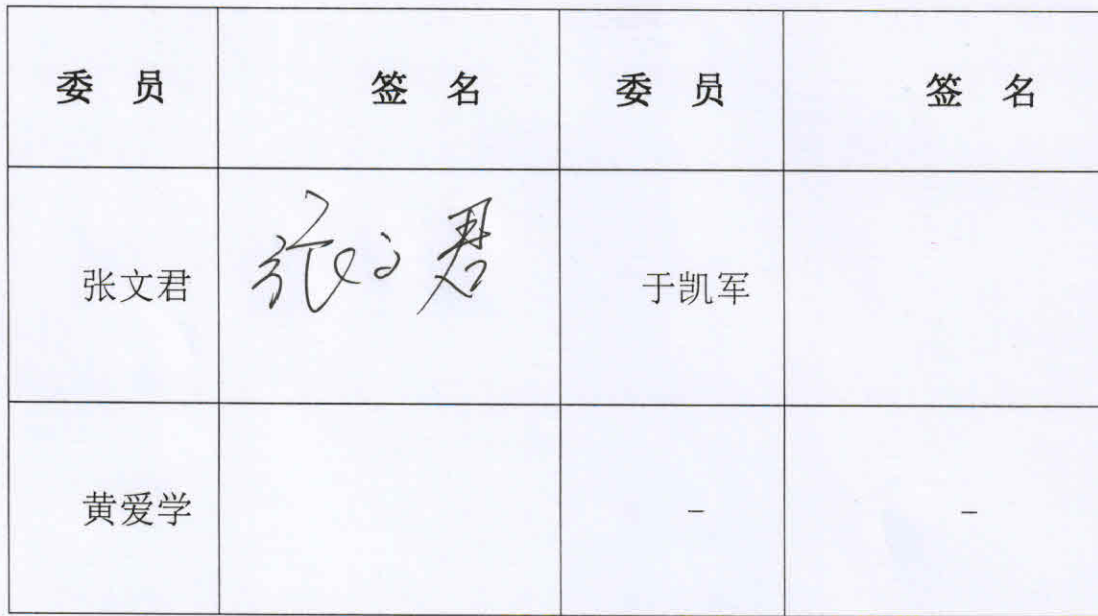 委 员 签 名 委 员 签 名
张文君 张文君 于凯军
黄爱学 – –